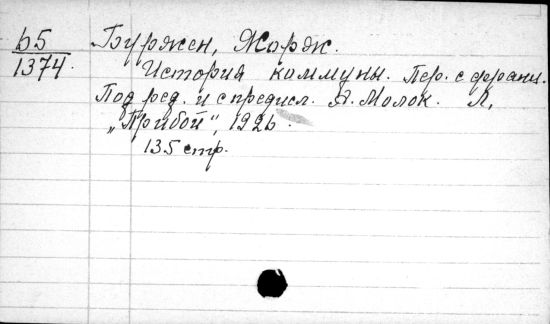 Б5 Буржен, Жорж.
1374. История коммуны. Пер. с франц.
Под ред. и с предисл. А. Молок. Л,
„Прибой“, 1926.
135 стр.